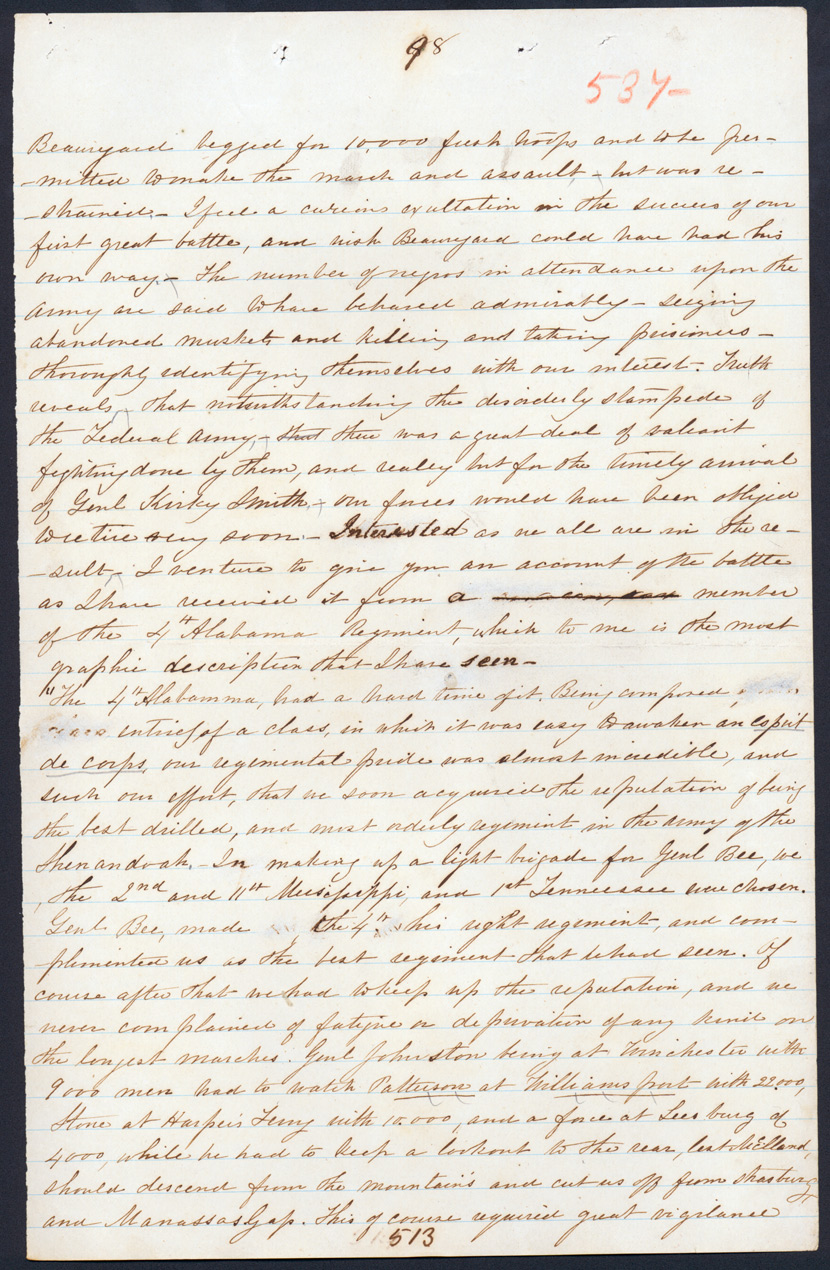 98
537-
Beauregard begged for 10,000 fresh troops and to be per-
-mitted to make the march and assault - but was re-
-strained - I feel a curious exultation in the success of our
first great battle, and wish Beauregard could have had his
own way. - The number of negros in attendance upon the
Army are said to have behaved admirably - seizing
abandoned muskets and killing and taking prisioners -
thoroughly identifying themselves with our interest - Truth
reveals, that notwithstanding the disorderly stampede of
the Federal Army, - that there was a great deal of valiant
fighting done by them, and realey but for the timely arrival
of Genl Kirby Smith, - our forces would have been obliged
to retire very soon. - Interested as we all are in the re-
-sult, - I venture to give you an account of the battle
as I have received it from a member
of the 4th Alabama Regiment, which to me is the most
graphic description that I have seen -
"The 4th Alabamma, had a hard time of it. Being composed
entirely of a class, in which it was easy to awaken an espirit
de corps, our regimental pride was almost incredible, and
such our effort, that we soon acquired the reputation of being
the best drilled, and most orderly regiment in the army of the
Shenandoah. - In making up a light brigade for Genl Bee, we
, the 2nd and 11th Mississippi, and 1st Tennessee were chosen.
Genl Bee, made the 4th his right regiment, and com-
plimented us as the best regiment that he had seen. Of
course after that we had to keep up the reputation, and we
never complained of fatigue or deprivation of any kind on
the longest marches. Genl Johnston being at Winchester with
9000 men had to watch Patterson at Williamsport with 22000,
Stone at Harpers Ferry with 10.000, and a force at Leesburg of
4000, while he had to keep a lookout to the rear, lest McClelland,
should descend from the mountains and cut us off from Strasburg
and Manassas Gap. This of course required great vigilance
513